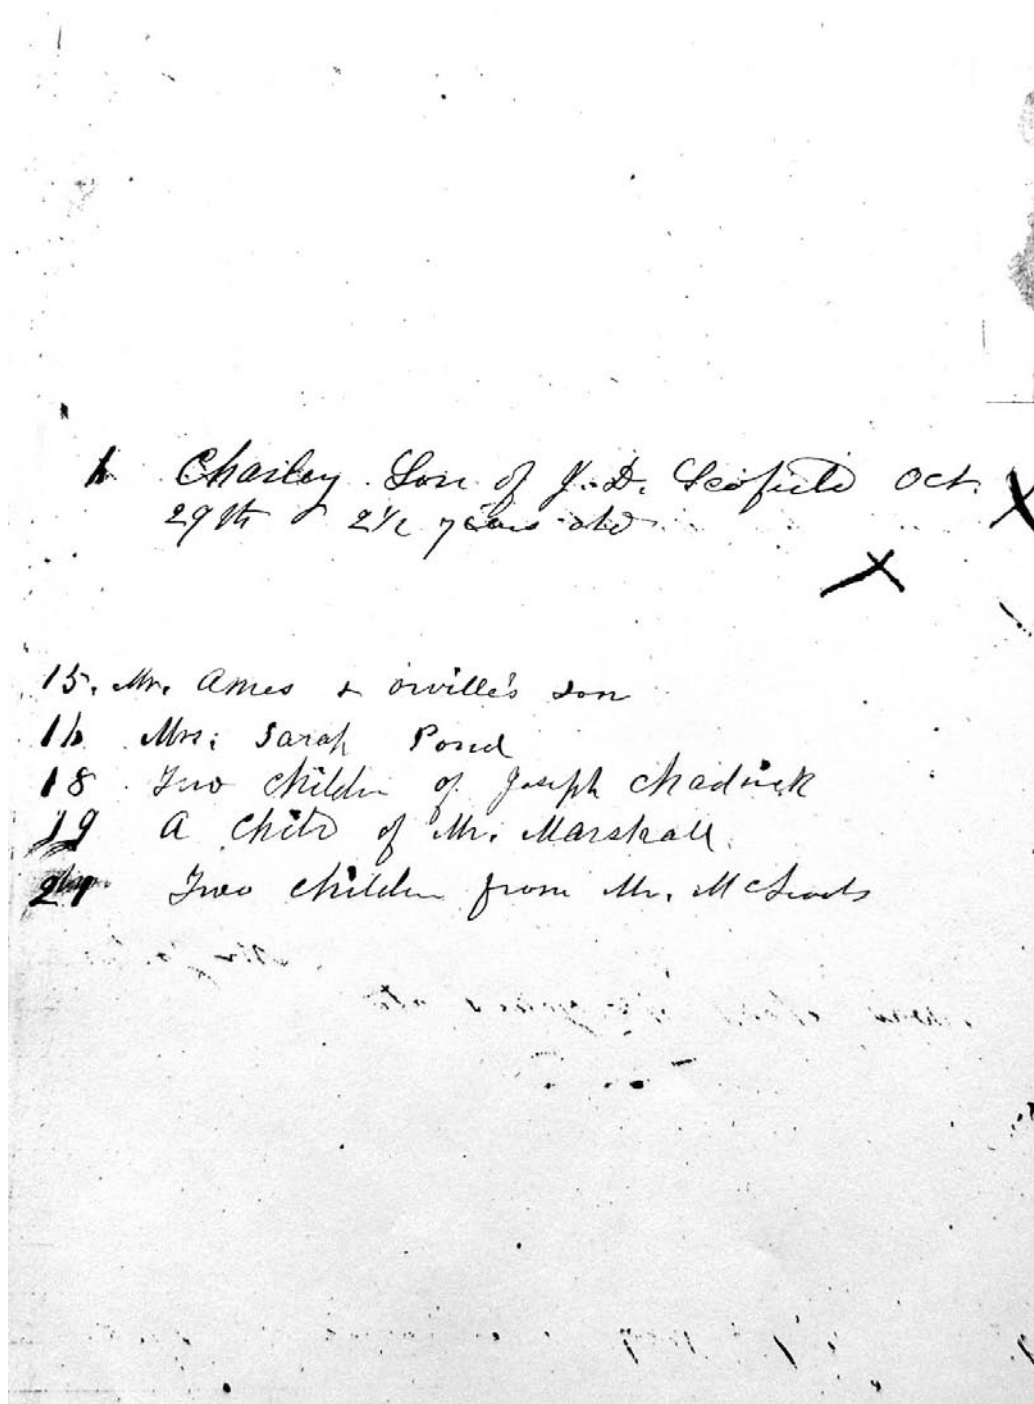 Charley Son of J. D. Scofield Oct.
29th 2 1/2 years old
15. Mr. Ames & Orville's son
16 Mrs. Sarah Pond
18 Two Children of Joseph Chadwick
19 A Child of Mr. Marshall
Two Children from Mr.